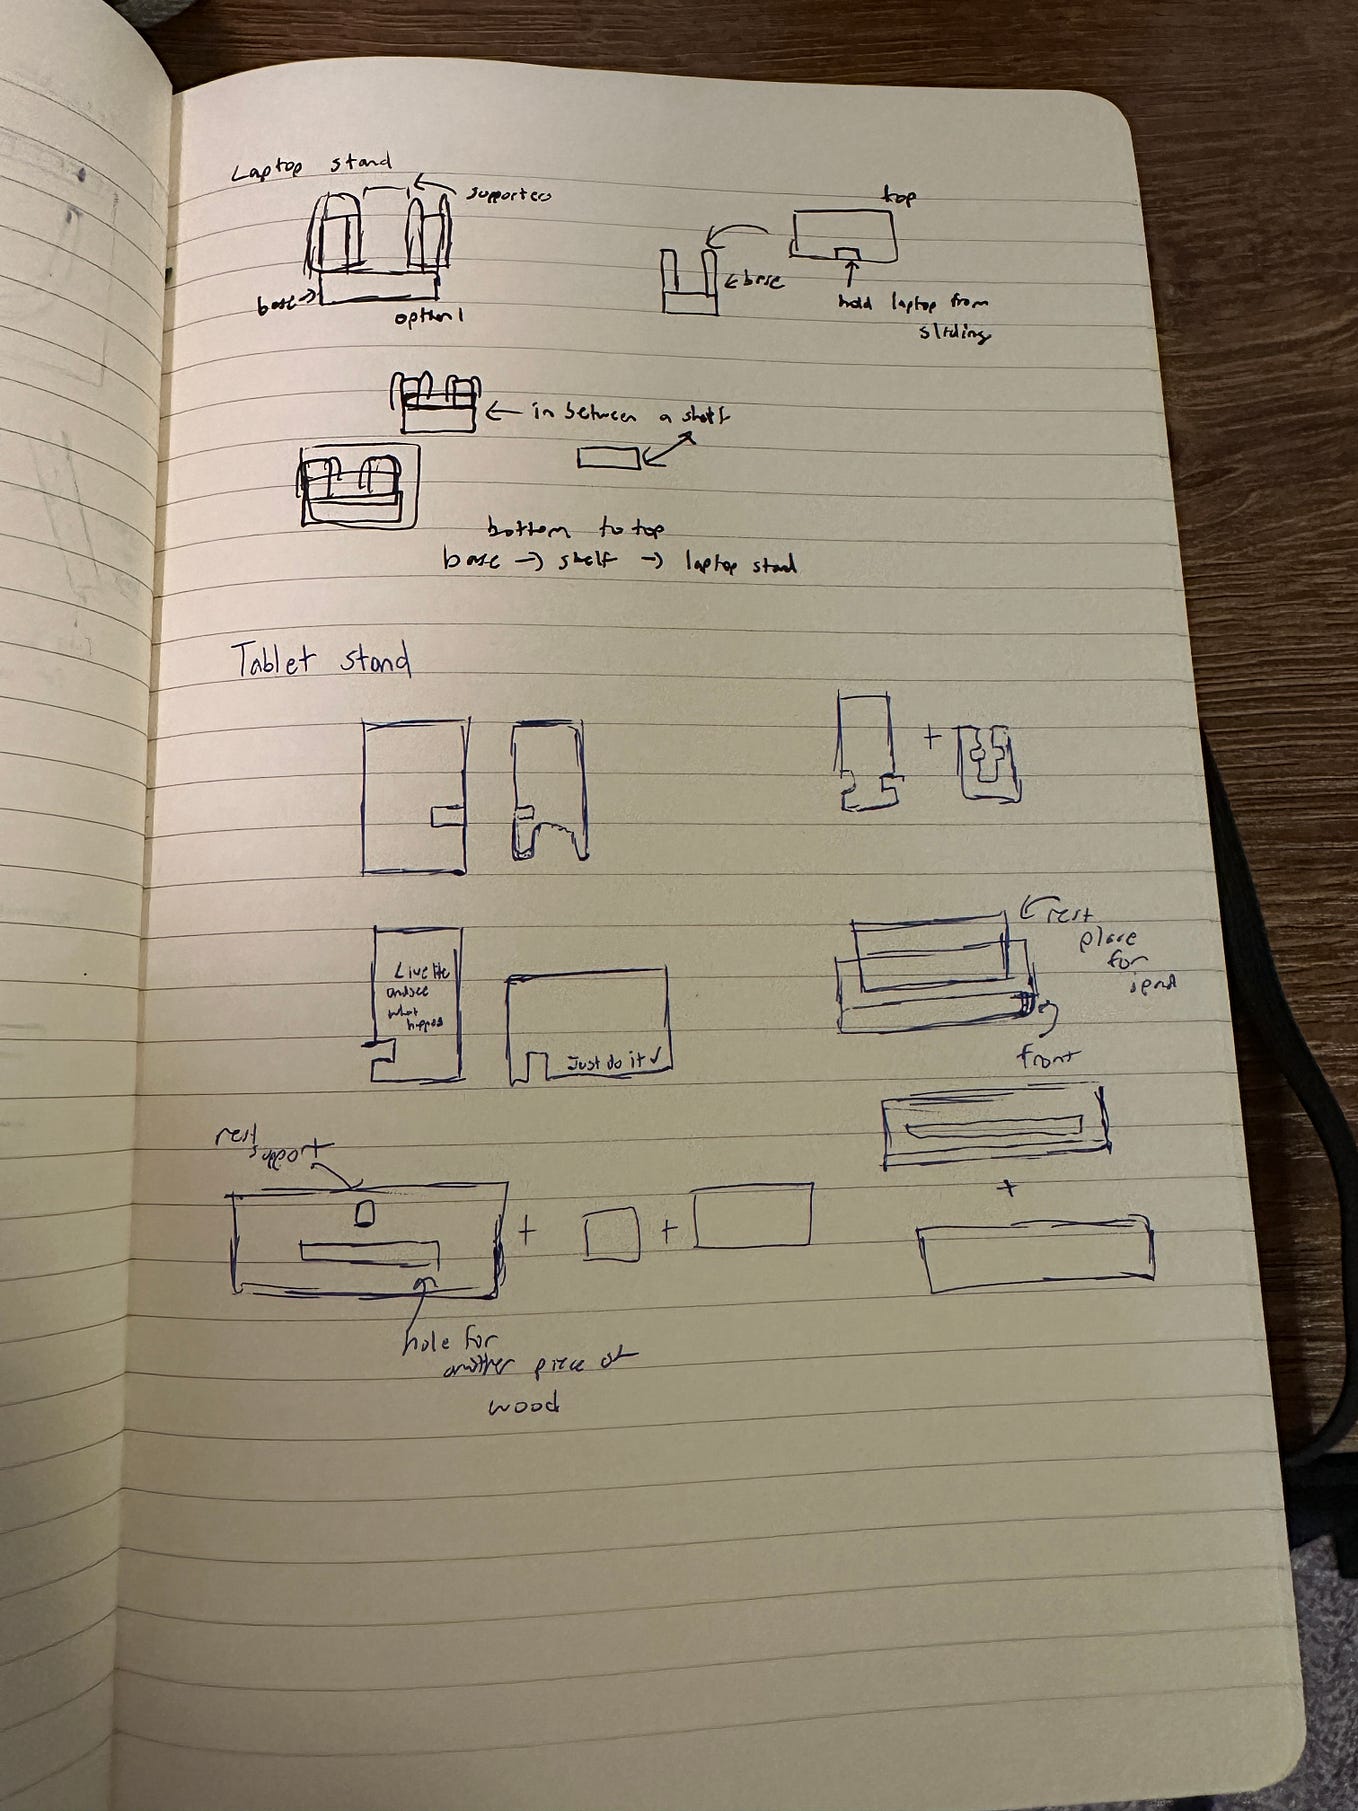 Laptop stand
supporters
top
base
base
option 1
hold laptop from
sliding
in between a shelf
bottom to top
base → shelf → laptop stand
Tablet stand
+
Live life
and see
what
happens
Just do it ✓
rest
place
for
ipad
front
rest
support
+
+
+
hole for
another piece of
wood